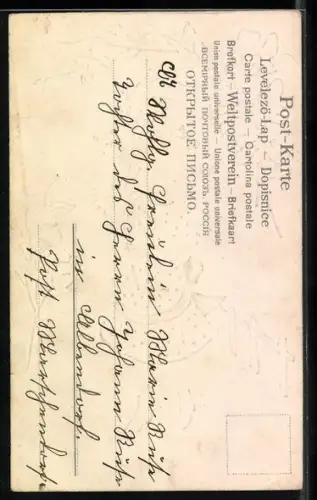 Post-Karte
Levelező-Lap – Dopisnice
Carte postale – Cartolina postale
Brefkort – Weltpostverein – Briefkaart
Union postale universelle – Unione postale universale
ВСЕМІРНЫЙ ПОЧТОВЫЙ СОЮЗЪ. РОССІЯ
ОТКРЫТОЕ ПИСЬМО.
Fräulein Marie
Tochter des Herrn Johann
in Albendorf
Post Marschendorf